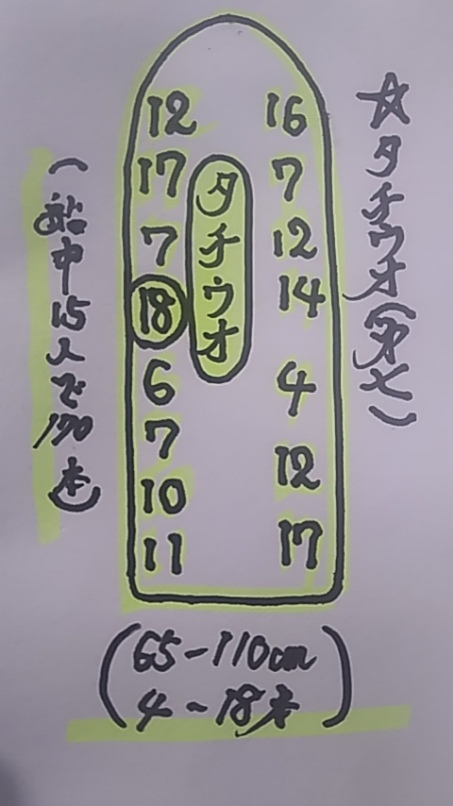 ☆タチウオ(第七)
12 16
17 7
7 12
18 14
6 4
7 12
10 17
11
タチウオ
(船中15人で170本)
(65-110cm
4~18本)